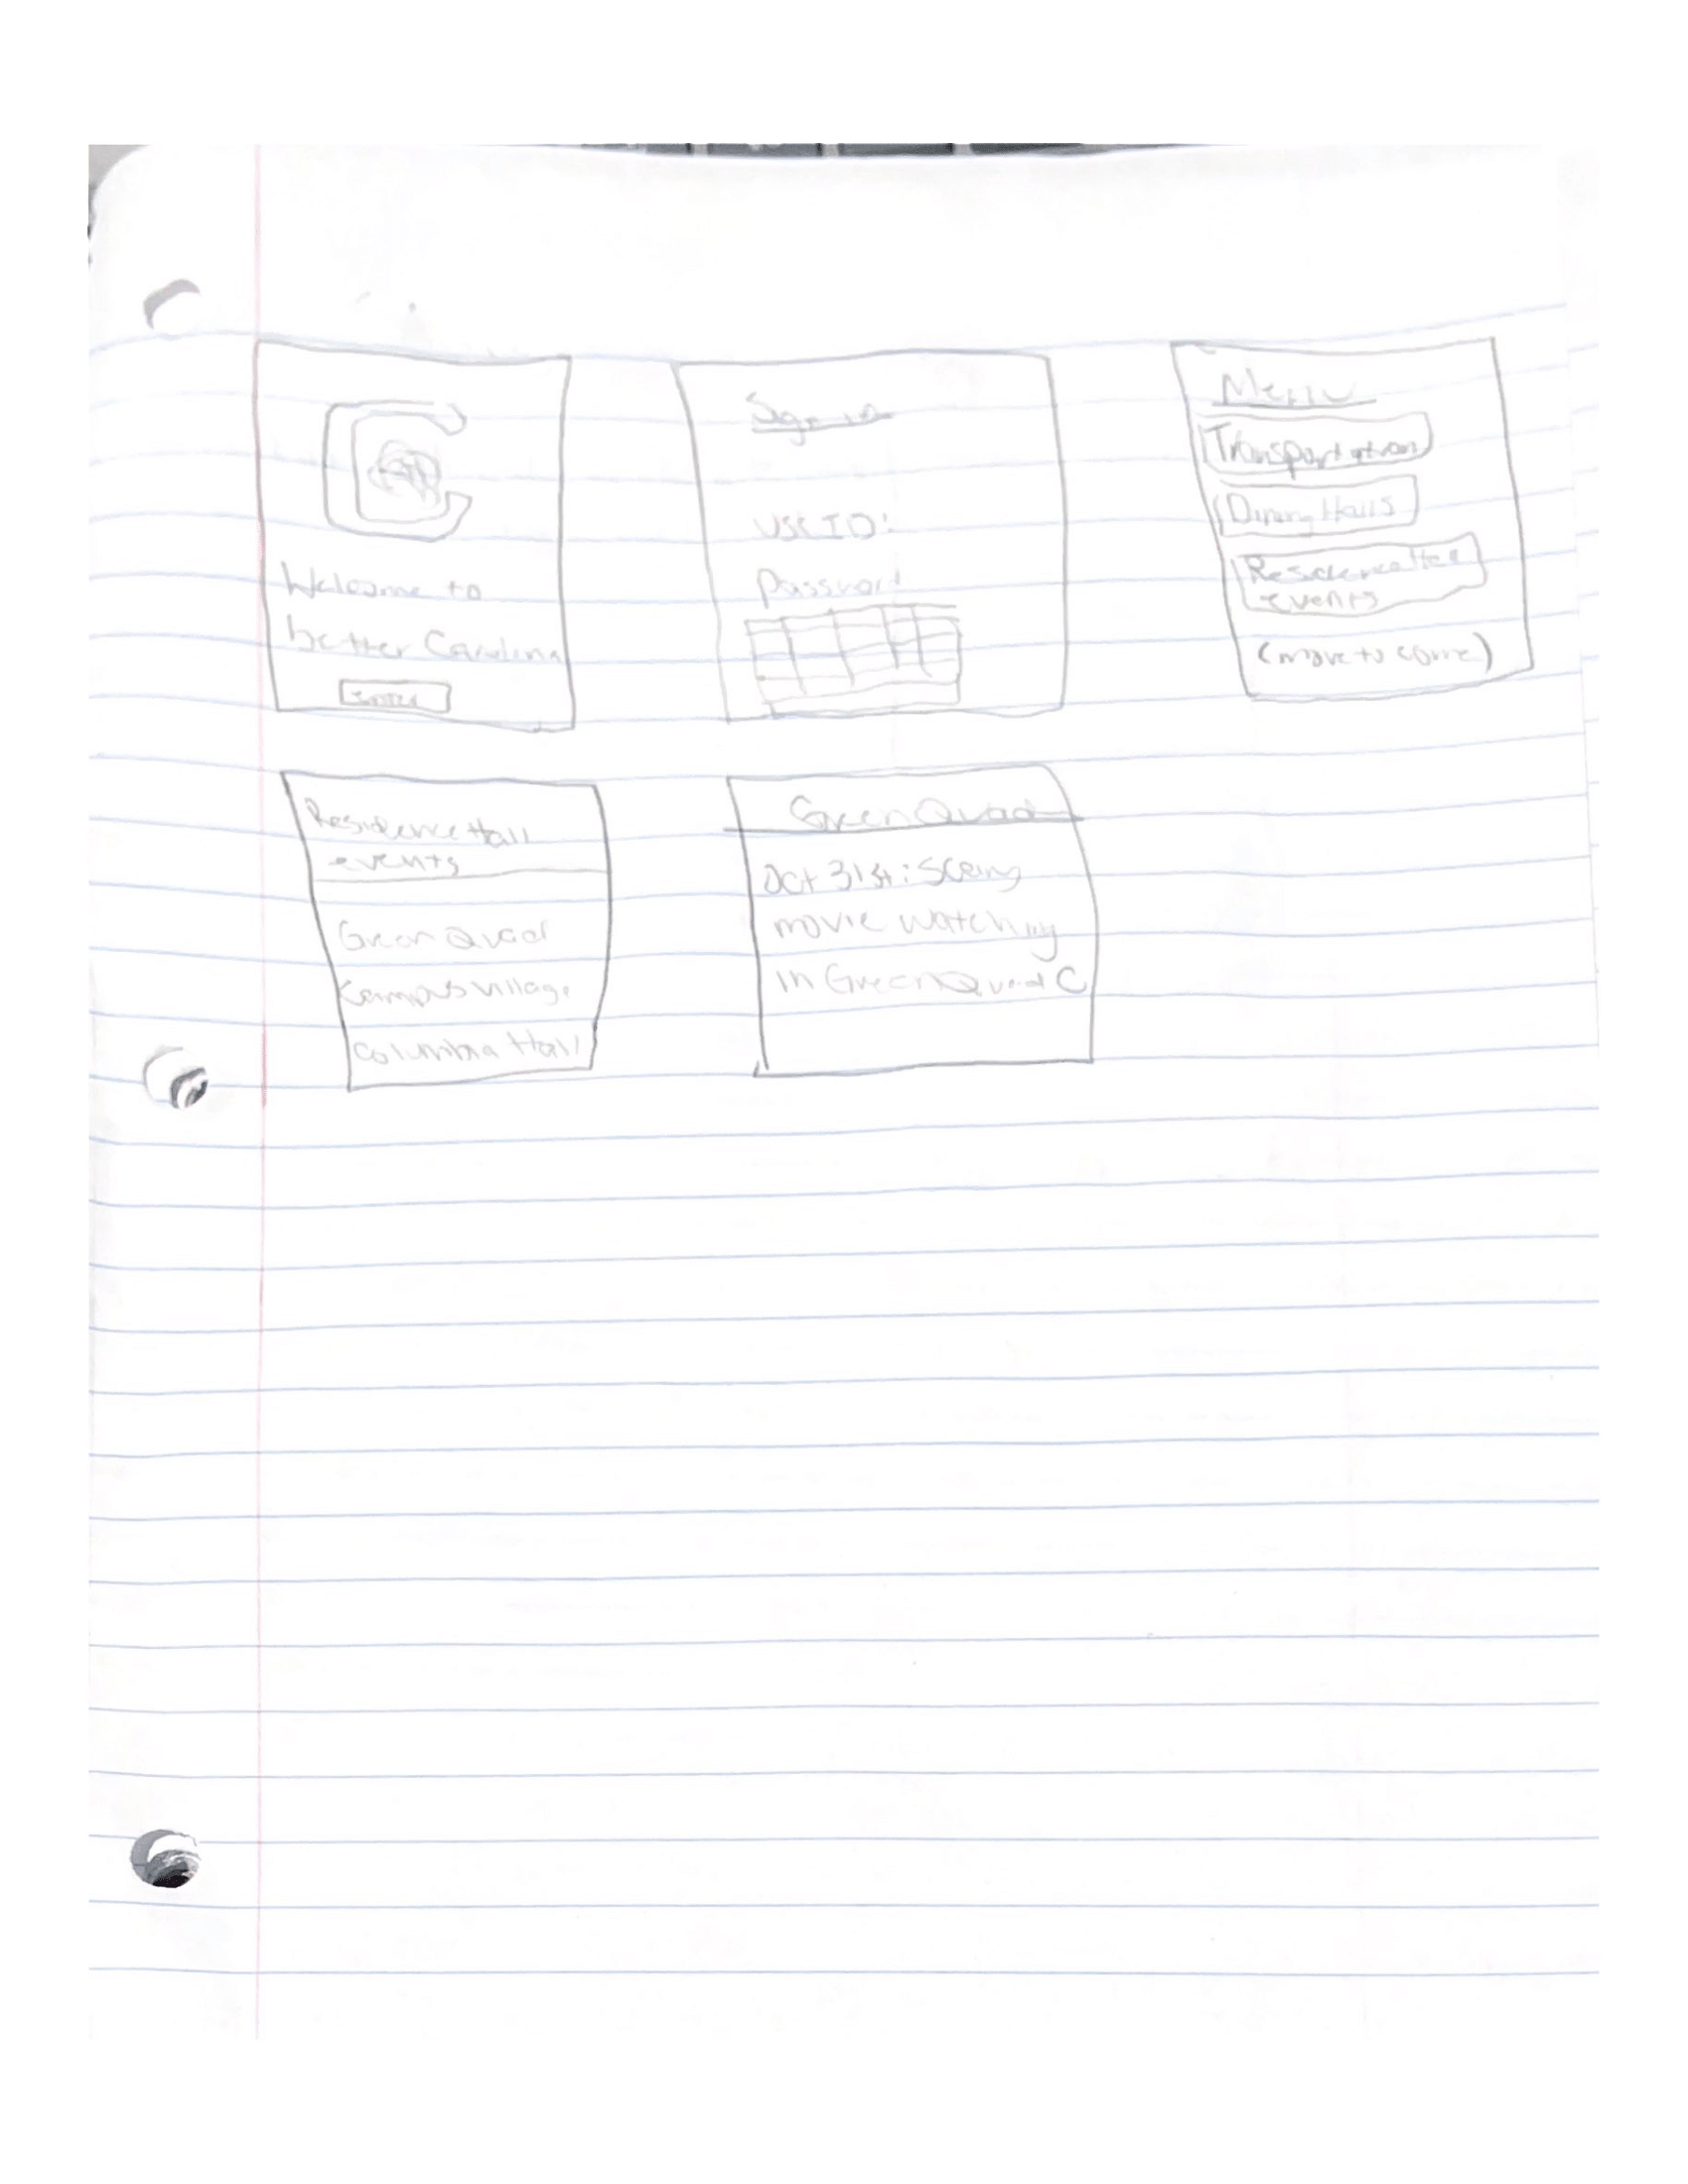 Welcome to
better Carolina
Enter
Sign in
USC ID:
Password
Menu
Transportation
Dining Halls
Residence Hall
events
(more to come)
Residence Hall
events
Green Quad
Campus Village
Columbia Hall
Green Quad
Oct 31st: Scary
movie watching
in Green Quad C